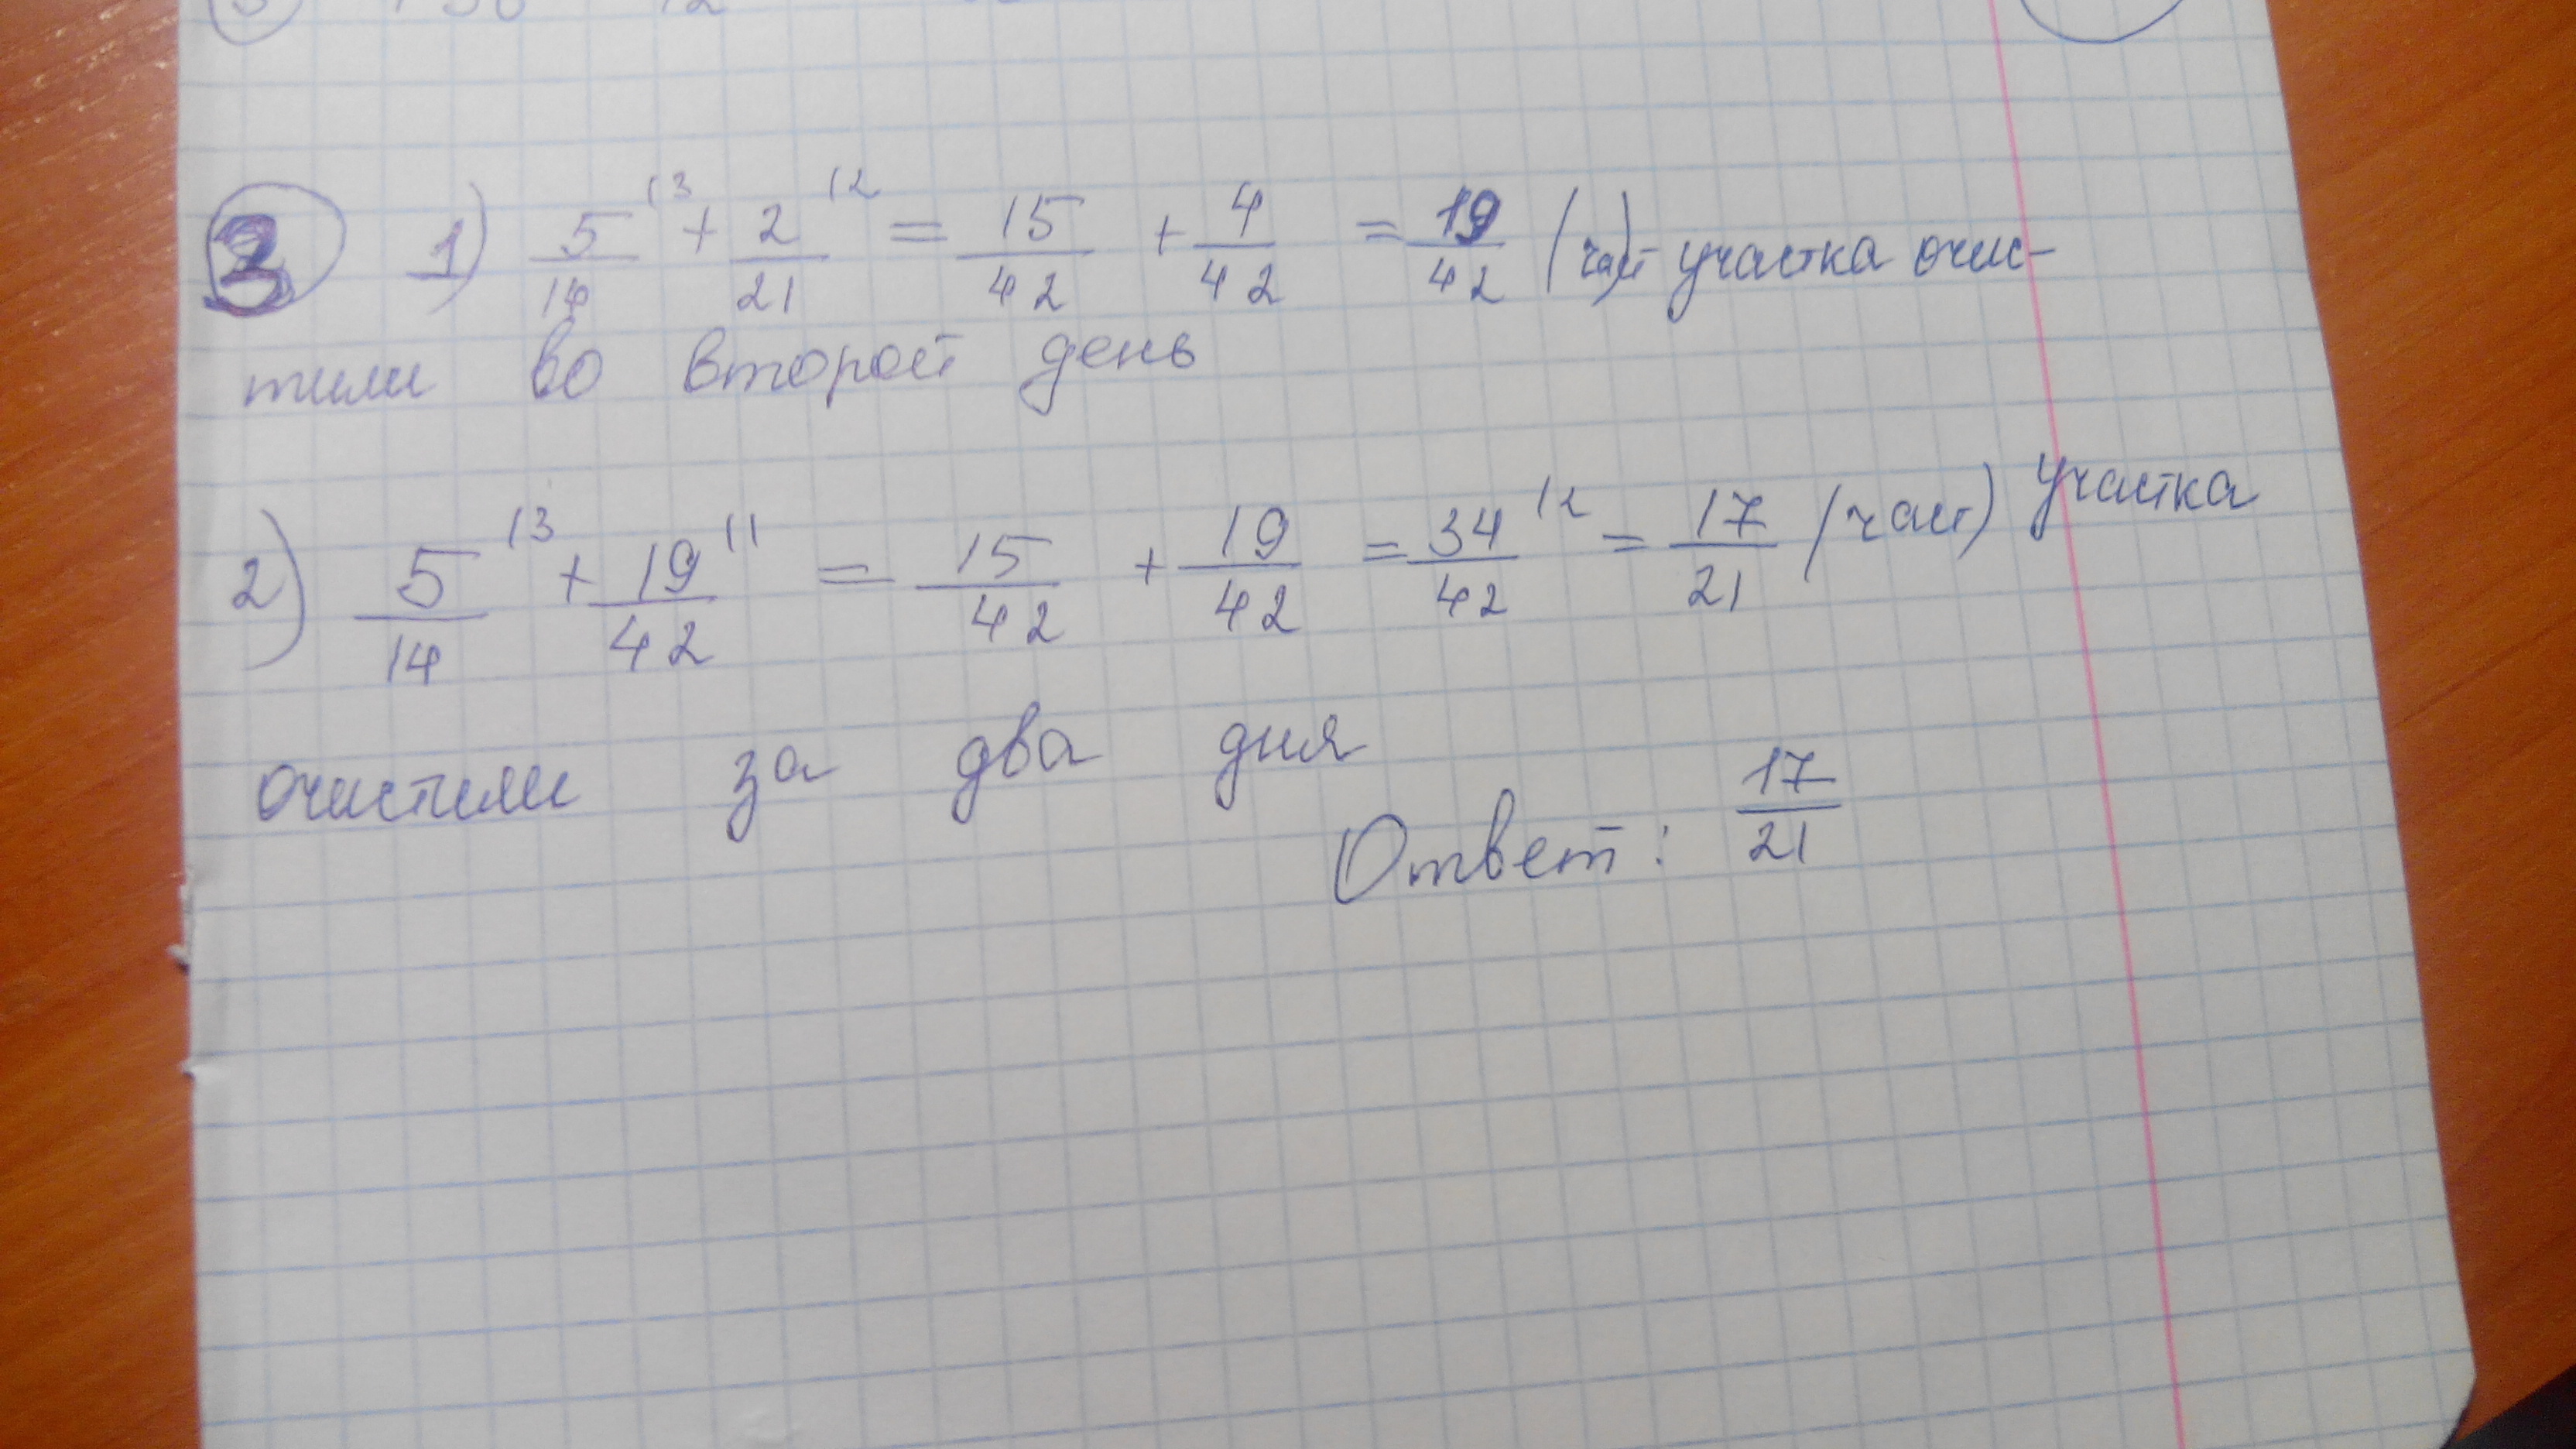 3 1) 5/14 |3 + 2/21 |2 = 15/42 + 4/42 = 19/42 (част) участка очис-
тили во второй день
2) 5/14 |3 + 19/42 |1 = 15/42 + 19/42 = 34/42 |2 = 17/21 (част) участка
очистили за два дня
Ответ: 17/21